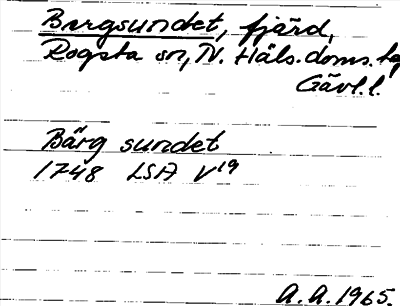 Bergsundet, fjärd,
Rogsta sn, N. Häls. doms. tg
Gävl. l.
Bärg sundet
1748 LSA V19
A. A. 1965.